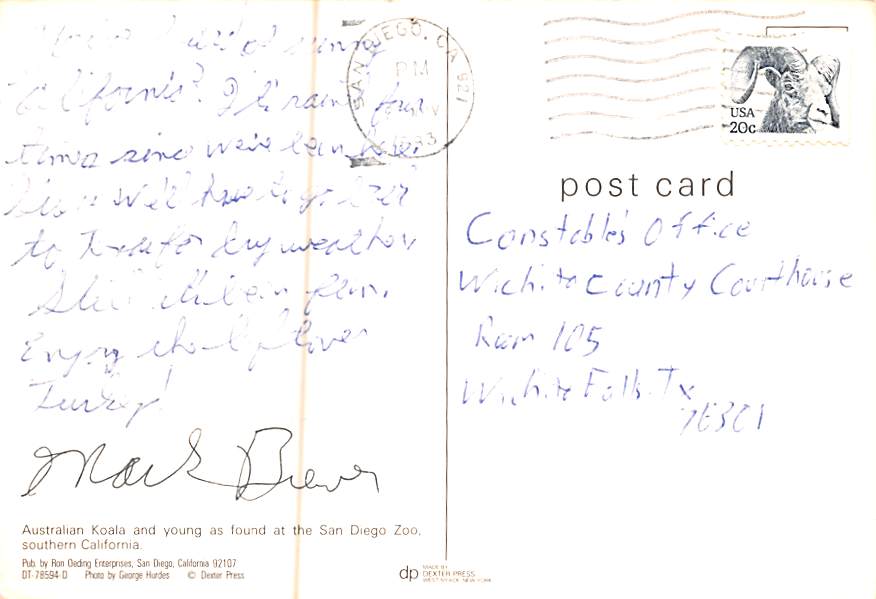 of sunny
California? It's rained four
times since we've been here.
we'll have to go back
to Texas for dry weather.
Still it's been fun.
Enjoy the leftover
Turkey!
Mark Brewer
Australian Koala and young as found at the San Diego Zoo,
southern California.
Pub. by Ron Oeding Enterprises, San Diego, California 92107
DT-78594-D Photo by George Hurdes © Dexter Press
SAN DIEGO, CA 921
PM
USA
20c
post card
Constable's Office
Wichita County Courthouse
Room 105
Wichita Falls, Tx
76301
dp MADE BY
DEXTER PRESS
WEST NYACK, NEW YORK